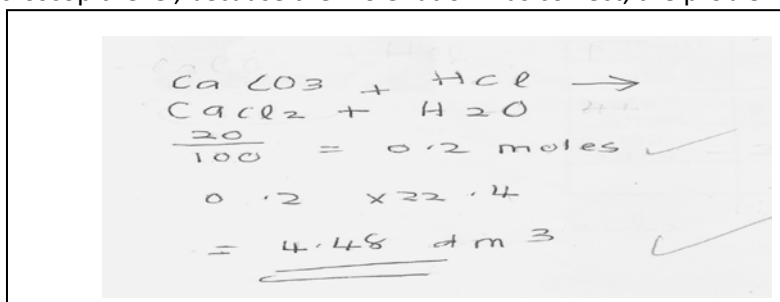 CaCO3 + HCl →
CaCl2 + H2O
20
100 = 0.2 moles ✓
0.2 x 22.4
= 4.48 dm3 ✓